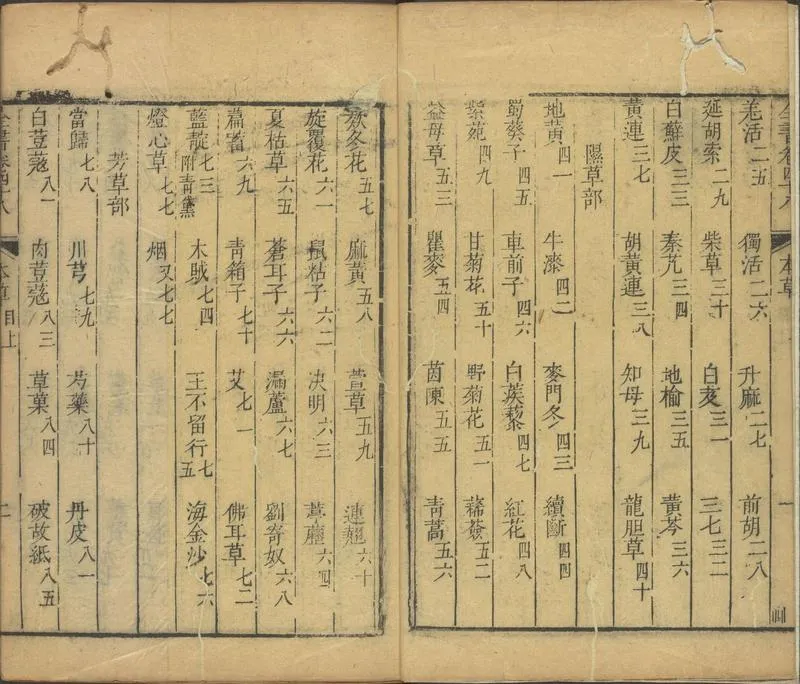 全書卷四十八 本草 一
羌活二五 獨活二六 升麻二七 前胡二八
延胡索二九 柴草三十 白芨三一 三七三二
白鮮皮三三 秦艽三四 地榆三五 黃芩三六
黃連三七 胡黃連三八 知母三九 龍胆草四十
隰草部
地黃四一 牛漆四二 麥門冬四三 續斷四四
蜀葵子四五 車前子四六 白蒺藜四七 紅花四八
紫菀四九 甘菊花五十 野菊花五一 豨薟五二
益母草五三 瞿麥五四 茵陳五五 青蒿五六
欵冬花五七 麻黃五八 萱草五九 連翹六十
旋覆花六一 鼠粘子六二 决明六三 葶藶六四
夏枯草六五 蒼耳子六六 漏蘆六七 劉寄奴六八
萹蓄六九 青箱子七十 艾七一 佛耳草七二
藍靛七三附青黛 木賊七四 王不留行七五 海金沙七六
燈心草七七 烟又七七
芳草部
當歸七八 川芎七九 芍藥八十 丹皮八一
白荳蔻八一 肉荳蔻八三 草菓八四 破故紙八五
全書卷四十八 本草目上 二